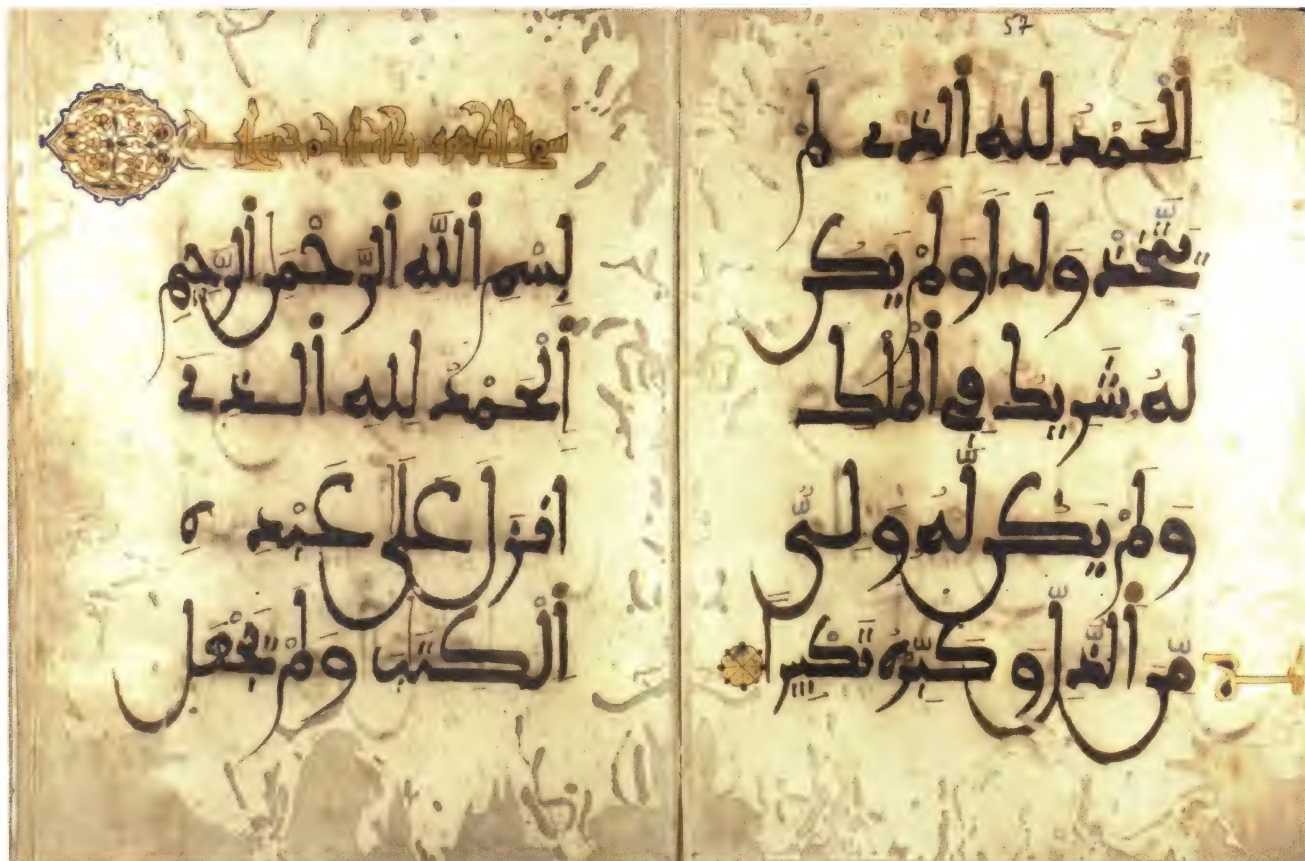 57
اَلْحَمْدُ لِلهِ اِلذِے لَمْ
يَتَّخِذْ وَلَداً وَلَمْ يَكُن
لَّهُ شَرِيكٌ فِے اِلْمُلْكِ
وَلَمْ يَكُن لَّهُ وَلِىٌّ
مِّنَ اَلذُّلِّ وَكَبِّرْهُ تَكْبِيراً
بِسْمِ اِللَّهِ اِلرَّحْمَنِ اِلرَّحِيمِ
اِلْحَمْدُ لِلهِ اِلذِے
أَنزَلَ عَلَى عَبْدِهِ
اِلْكِتَبَ وَلَمْ يَجْعَل